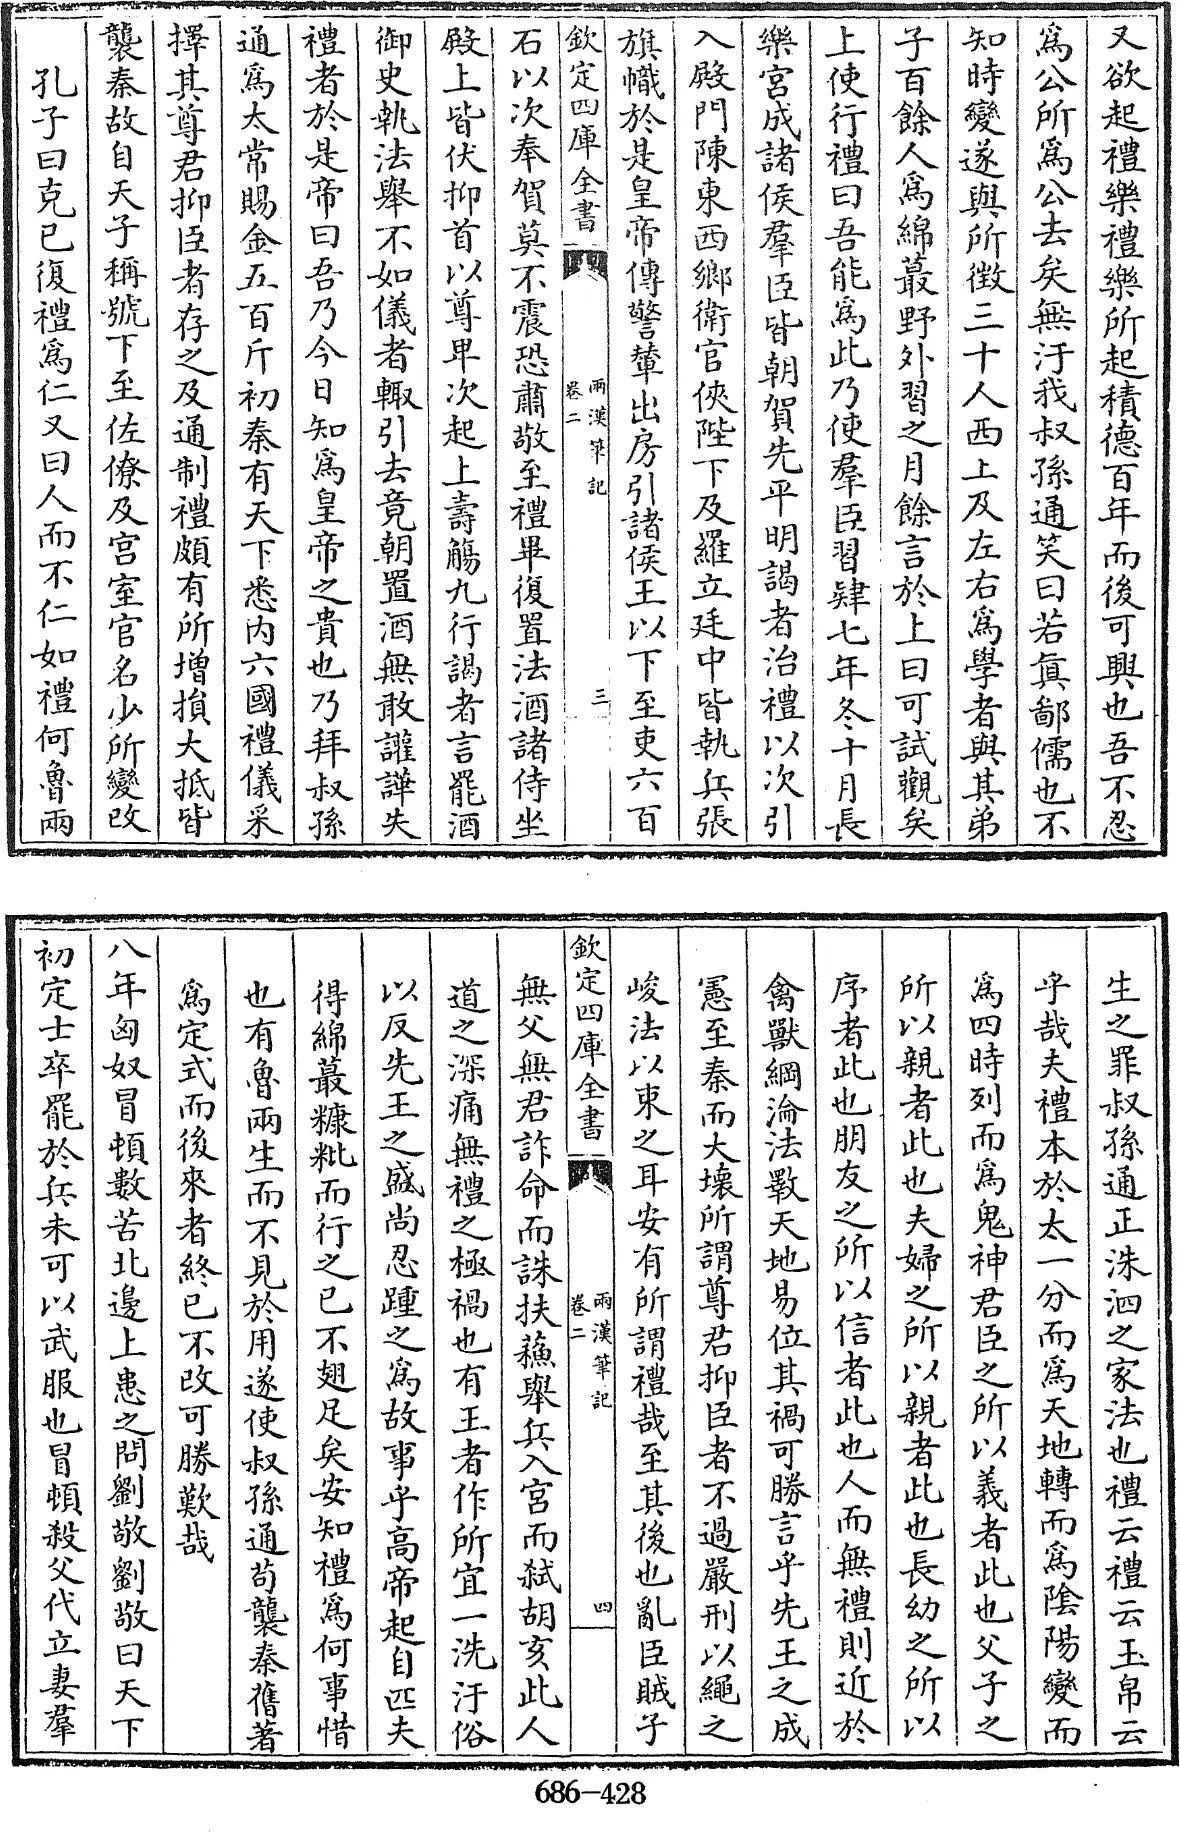 又欲起禮樂禮樂所起積德百年而後可興也吾不忍
為公所為公去矣無汙我叔孫通笑曰若真鄙儒也不
知時變遂與所徴三十人西上及左右為學者與其弟
子百餘人為綿蕞野外習之月餘言於上曰可試觀矣
上使行禮曰吾能為此乃使羣臣習肄七年冬十月長
樂宮成諸侯羣臣皆朝賀先平明謁者治禮以次引
入殿門陳東西鄉衛官俠陛下及羅立廷中皆執兵張
旗幟於是皇帝傳警輦出房引諸侯王以下至吏六百
欽定四庫全書 兩漢筆記 卷二 三
石以次奉賀莫不震恐肅敬至禮畢復置法酒諸侍坐
殿上皆伏抑首以尊卑次起上壽觴九行謁者言罷酒
御史執法舉不如儀者輙引去竟朝置酒無敢讙譁失
禮者於是帝曰吾乃今日知為皇帝之貴也乃拜叔孫
通為太常賜金五百斤初秦有天下悉内六國禮儀采
擇其尊君抑臣者存之及通制禮頗有所増損大抵皆
襲秦故自天子稱號下至佐僚及宫室官名少所變改
孔子曰克己復禮為仁又曰人而不仁如禮何魯兩
生之罪叔孫通正洙泗之家法也禮云禮云玉帛云
乎哉夫禮本於太一分而為天地轉而為陰陽變而
為四時列而為鬼神君臣之所以義者此也父子之
所以親者此也夫婦之所以親者此也長幼之所以
序者此也朋友之所以信者此也人而無禮則近於
禽獸綱淪法斁天地易位其禍可勝言乎先王之成
憲至秦而大壞所謂尊君抑臣者不過嚴刑以繩之
峻法以束之耳安有所謂禮哉至其後也亂臣賊子
欽定四庫全書 兩漢筆記 卷二 四
無父無君詐命而誅扶蘓舉兵入宮而弑胡亥此人
道之深痛無禮之極禍也有王者作所宜一洗汙俗
以反先王之盛尚忍踵之為故事乎高帝起自匹夫
得綿蕞糠粃而行之已不翅足矣安知禮為何事惜
也有魯兩生而不見於用遂使叔孫通苟襲秦舊著
為定式而後來者終已不改可勝歎哉
八年匈奴冒頓數苦北邊上患之問劉敬劉敬曰天下
初定士卒罷於兵未可以武服也冒頓殺父代立妻羣
686-428